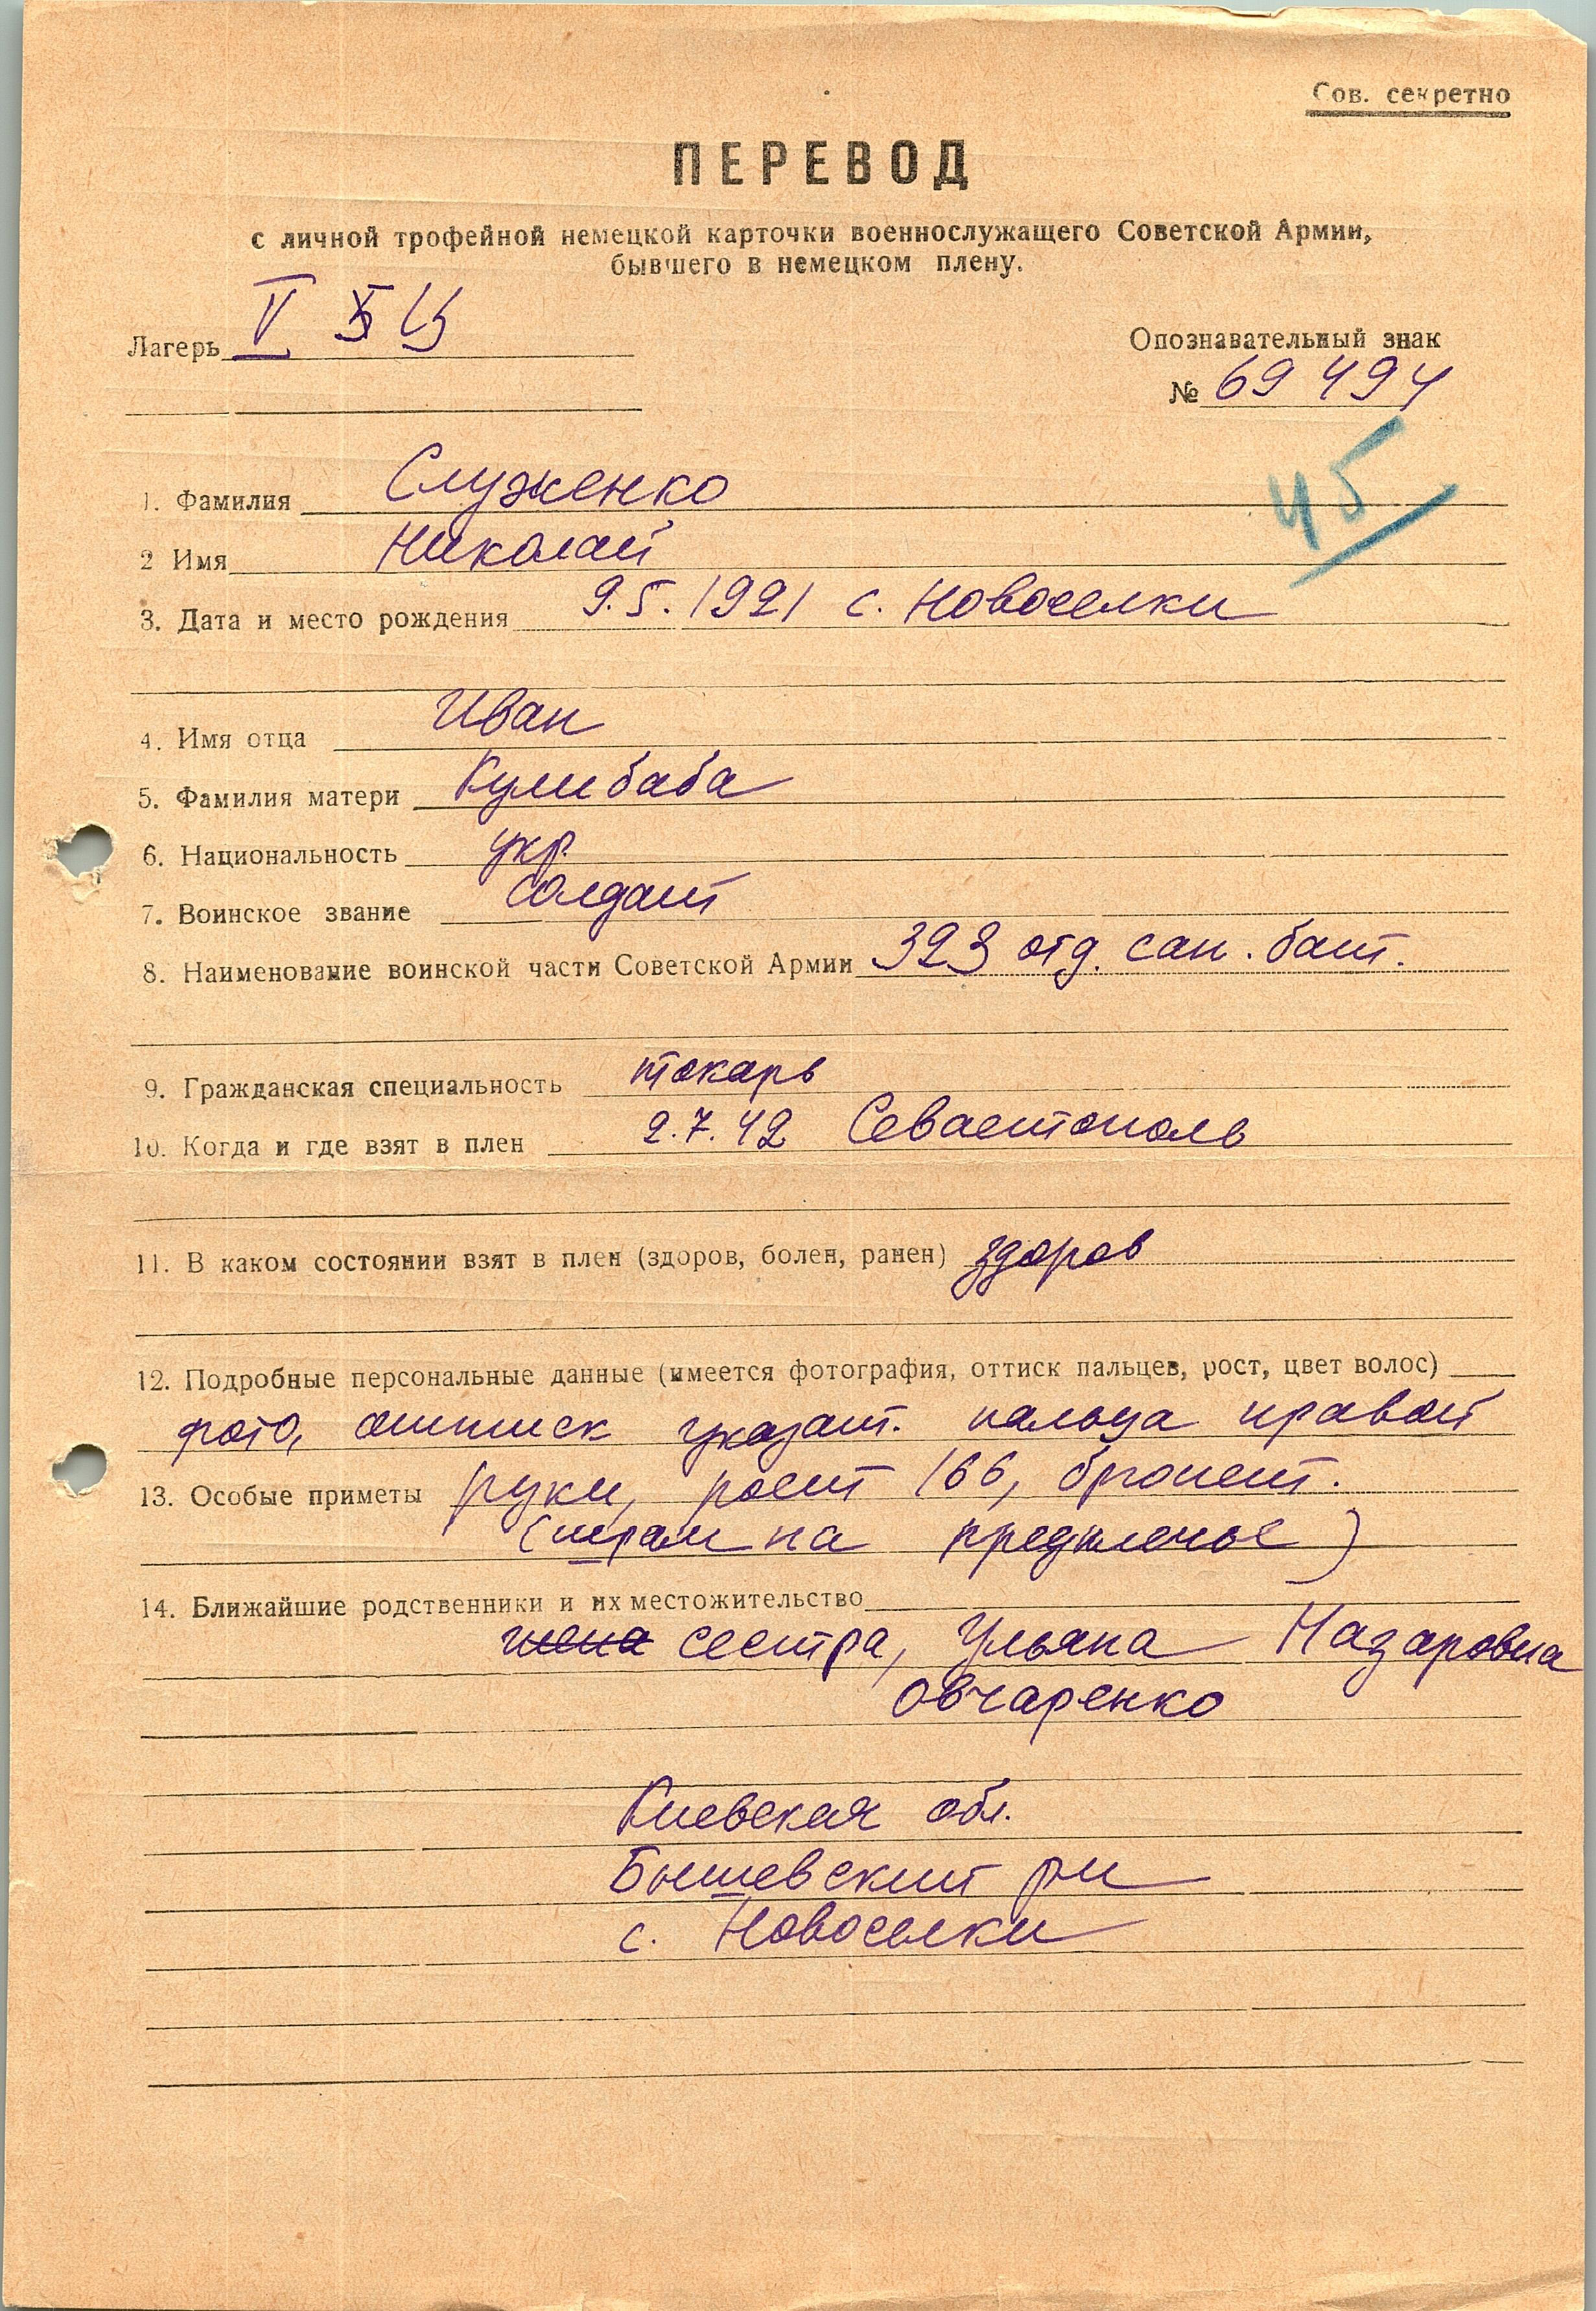 Сов. секретно
ПЕРЕВОД
с личной трофейной немецкой карточки военнослужащего Советской Армии,
бывшего в немецком плену.
Лагерь V
Опознавательный знак
№ 69 494
45
1. Фамилия Служенко
2 Имя Николай
3. Дата и место рождения 9.5.1921 с. Новоселки
4. Имя отца Иван
5. Фамилия матери Кулибаба
6. Национальность укр.
7. Воинское звание солдат
8. Наименование воинской части Советской Армии 323 отд. сан. бат.
9. Гражданская специальность токарь
10. Когда и где взят в плен 2.7.42 Севастополь
11. В каком состоянии взят в плен (здоров, болен, ранен) здоров
12. Подробные персональные данные (имеется фотография, оттиск пальцев, рост, цвет волос)
фото, оттиск указат. пальца правой
13. Особые приметы руки, рост 166, брюнет.
(шрам на предплечье)
14. Ближайшие родственники и их местожительство
жена сестра, Ульяна Назаровна
Овчаренко
Киевская обл.
Бышевский рн
с. Новоселки